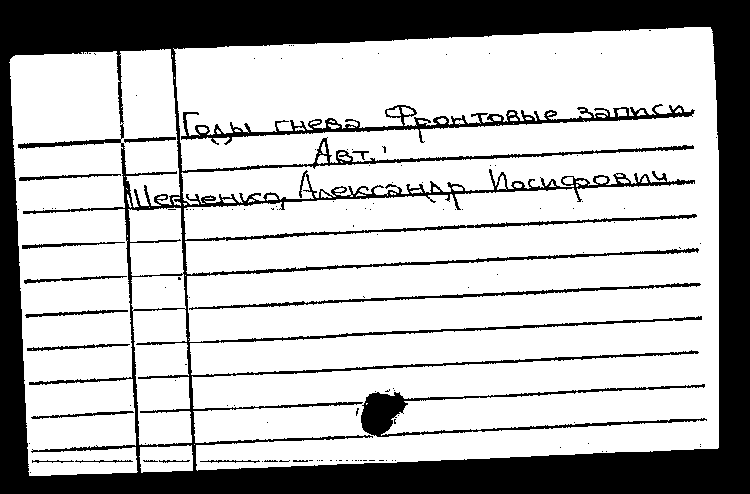 Годы гнева Фронтовые записи
Авт.:
Шевченко, Александр Иосифович.